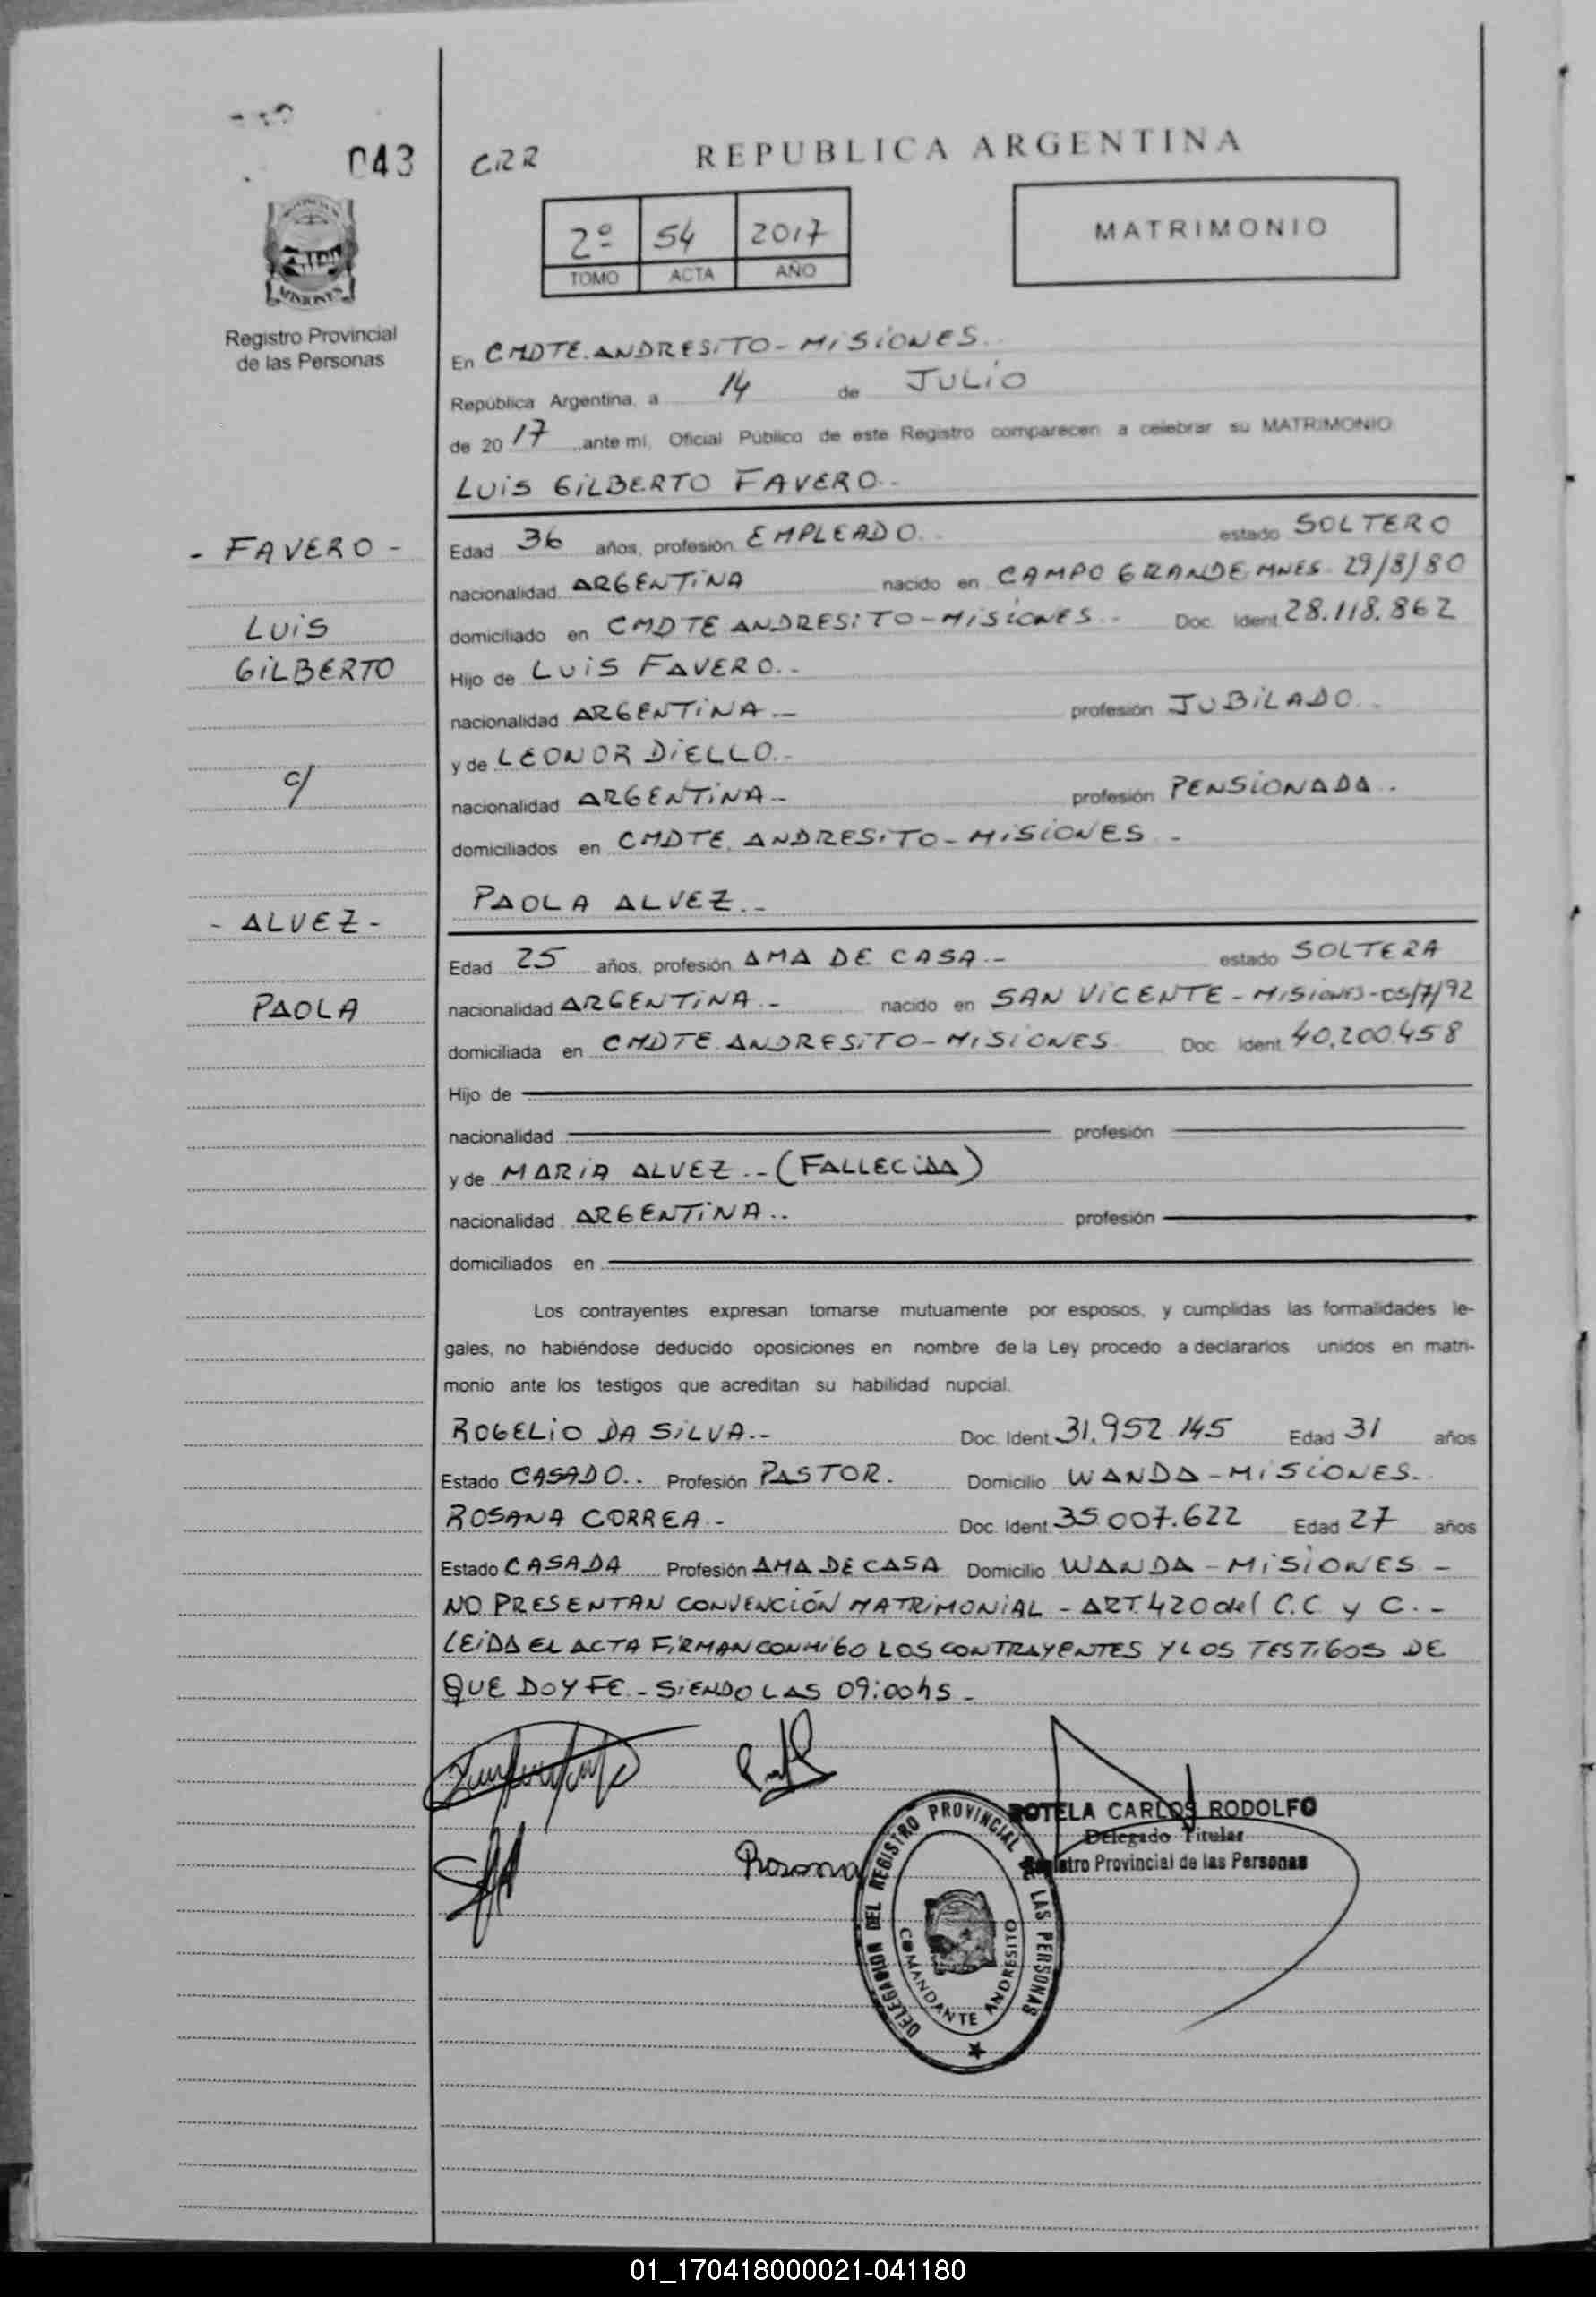 043
CRR
REPUBLICA ARGENTINA
2º 54 2017
TOMO ACTA AÑO
MATRIMONIO
MISIONES
Registro Provincial
de las Personas
En CMDTE. ANDRESiTO - MiSiONES.
República Argentina, a 14 de JULiO
de 20 17 ante mí, Oficial Público de este Registro comparecen a celebrar su MATRIMONIO
LUiS GiLBERTO FAVERO.-
- FAVERO -
LUiS
GiLBERTO
c/
- ALVEZ -
PAOLA
Edad 36 años, profesión EMPLEADO.- estado SOLTERO
nacionalidad ARGENTiNA nacido en CAMPO GRANDE MNES. 29/8/80
domiciliado en CMDTE ANDRESiTO - MiSiONES.- Doc. Ident 28.118.862
Hijo de LUiS FAVERO.-
nacionalidad ARGENTiNA.- profesión JUBiLADO.
y de LEONOR DiELLO.-
nacionalidad ARGENTiNA.- profesión PENSiONADA.
domiciliados en CMDTE. ANDRESiTO - MiSiONES -
PAOLA ALVEZ.-
Edad 25 años, profesión AMA DE CASA.- estado SOLTERA
nacionalidad ARGENTiNA.- nacido en SAN ViCENTE - MiSiONES - 05/7/92
domiciliada en CMDTE. ANDRESiTO - MiSiONES Doc. Ident. 40.200.458
Hijo de
nacionalidad profesión
y de MARiA ALVEZ.- (FALLECiDA)
nacionalidad ARGENTiNA.. profesión
domiciliados en
Los contrayentes expresan tomarse mutuamente por esposos, y cumplidas las formalidades le-
gales, no habiéndose deducido oposiciones en nombre de la Ley procedo a declararlos unidos en matri-
monio ante los testigos que acreditan su habilidad nupcial.
ROGELiO DA SiLVA.- Doc. Ident. 31.952.145 Edad 31 años
Estado CASADO.. Profesión PASTOR. Domicilio WANDA - MiSiONES.
ROSANA CORREA.- Doc. Ident 35.007.622 Edad 27 años
Estado CASADA Profesión AMA DE CASA Domicilio WANDA - MiSiONES -
NO PRESENTAN CONVENCiÓN MATRiMONiAL - ART. 420 del C.C y C.-
LEiDA EL ACTA FiRMAN CONMiGO LOS CONTRAYENTES Y LOS TESTiGOS DE
QUE DOY FE.- SiENDO LAS 09:00hs -
Rosana
ROTELA CARLOS RODOLFO
Delegado Titular
Registro Provincial de las Personas
DELEGACION DEL REGISTRO PROVINCIAL DE LAS PERSONAS
COMANDANTE ANDRESITO
01_170418000021-041180